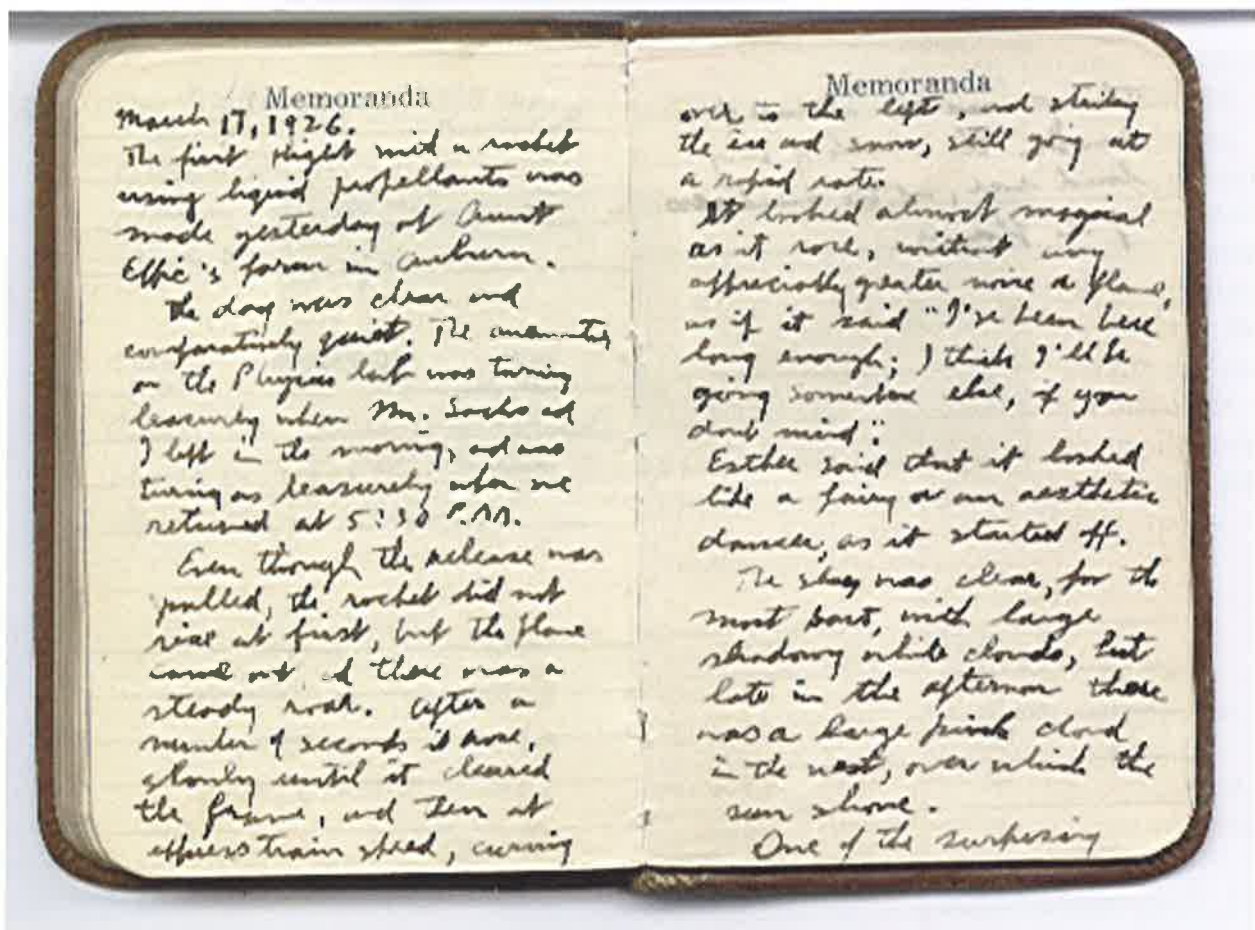 Memoranda
March 17, 1926.
The first flight with a rocket
using liquid propellants was
made yesterday at Aunt
Effie's farm in Auburn.
The day was clear and
comparatively quiet. The anemometer
on the Physics lab was turning
leasurely when Mr. Sachs and
I left in the morning, and was
turning as leasurely when we
returned at 5:30 P.M.
Even though the release was
pulled, the rocket did not
rise at first, but the flame
came out and there was a
steady roar. After a
number of seconds it rose,
slowly until it cleared
the frame, and then at
express train speed, curving
Memoranda
over to the left, and striking
the ice and snow, still going at
a rapid rate.
It looked almost magical
as it rose, without any
appreciably greater noise or flame,
as if it said "I've been here
long enough; I think I'll be
going somewhere else, if you
dont mind".
Esther said that it looked
like a fairy or an aesthetic
dancer, as it started off.
The sky was clear, for the
most part, with large
shadowy white clouds, but
late in the afternoon there
was a large pink cloud
in the west, over which the
sun shone.
One of the surprising